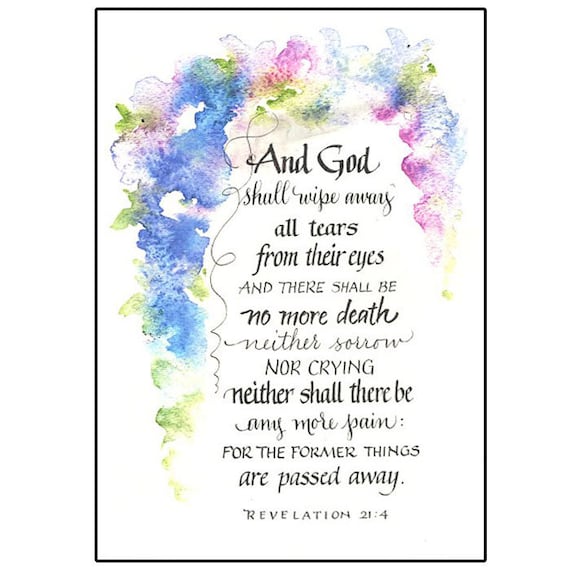 And God
shall wipe away
all tears
from their eyes
AND THERE SHALL BE
no more death
neither sorrow
NOR CRYING
neither shall there be
any more pain:
FOR THE FORMER THINGS
are passed away.
REVELATION 21:4